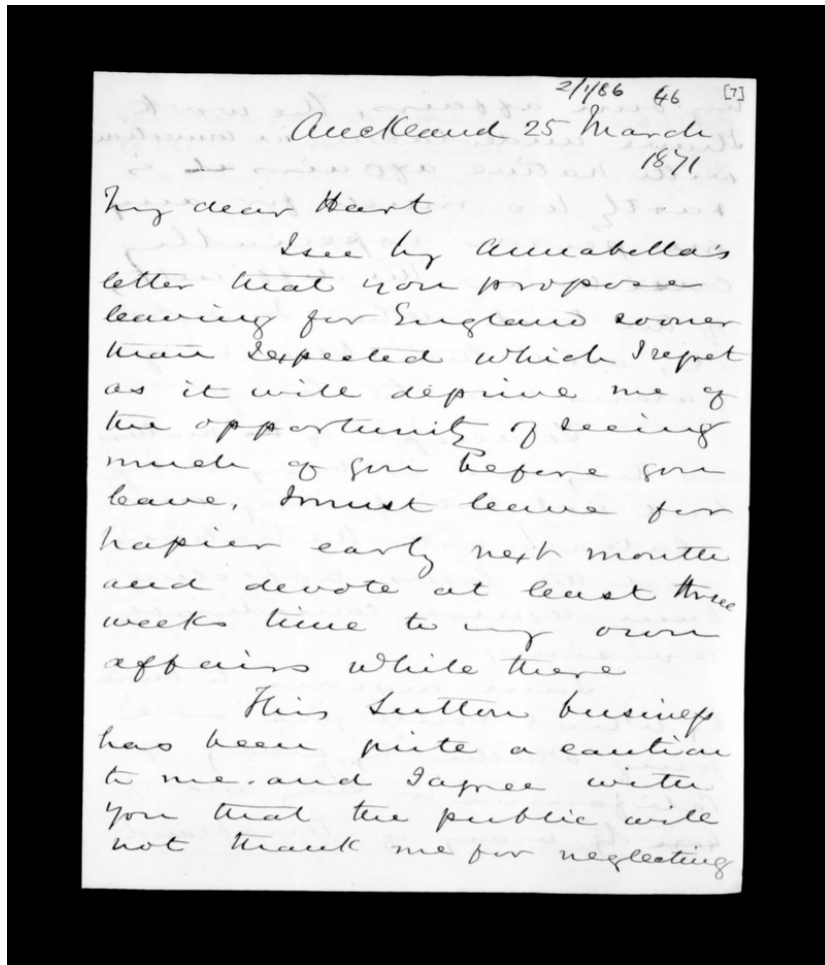 2/1/86 66 [7]
Auckland 25 March
1871
My dear Hart
I see by Annabella's
letter that you propose
leaving for England sooner
than I expected which I regret
as it will deprive me of
the opportunity of seeing
much of you before you
leave. I must leave for
Napier early next month
and devote at least three
weeks time to my own
affairs while there
This Sutton business
has been quite a caution
to me. and I agree with
you that the public will
not thank me for neglecting